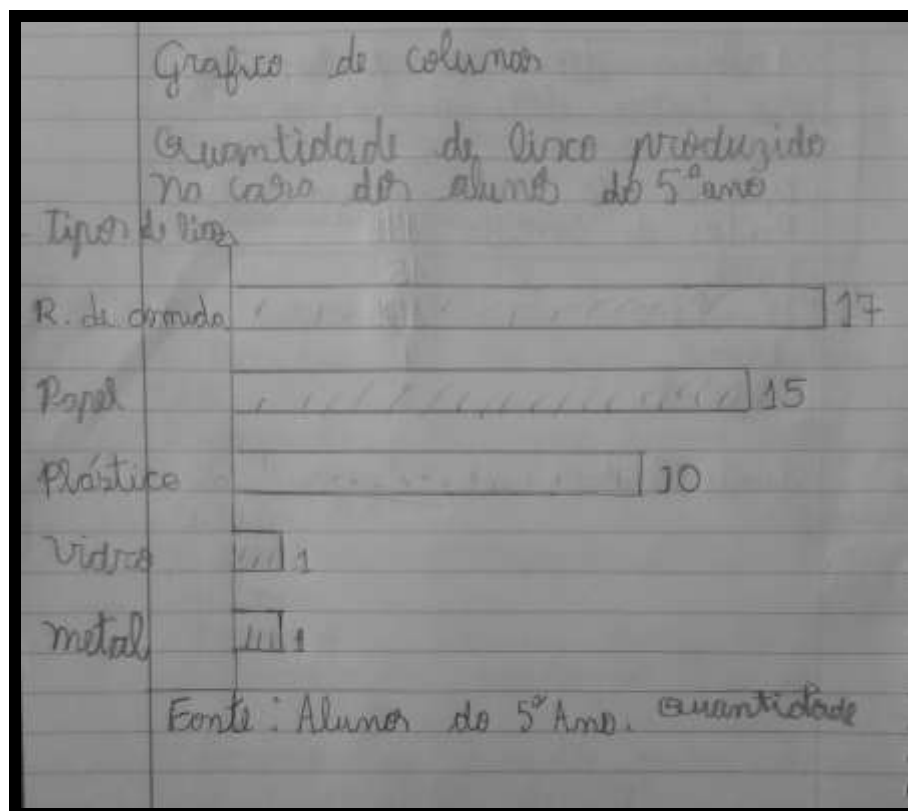 Grafico de colunas
Quantidade de lixo produzido
na casa dos alunos do 5º ano
Tipos de lixo
R. de comida 17
Papel 15
Plástico 10
Vidro 1
metal 1
Fonte: Alunos do 5º Ano. Quantidade